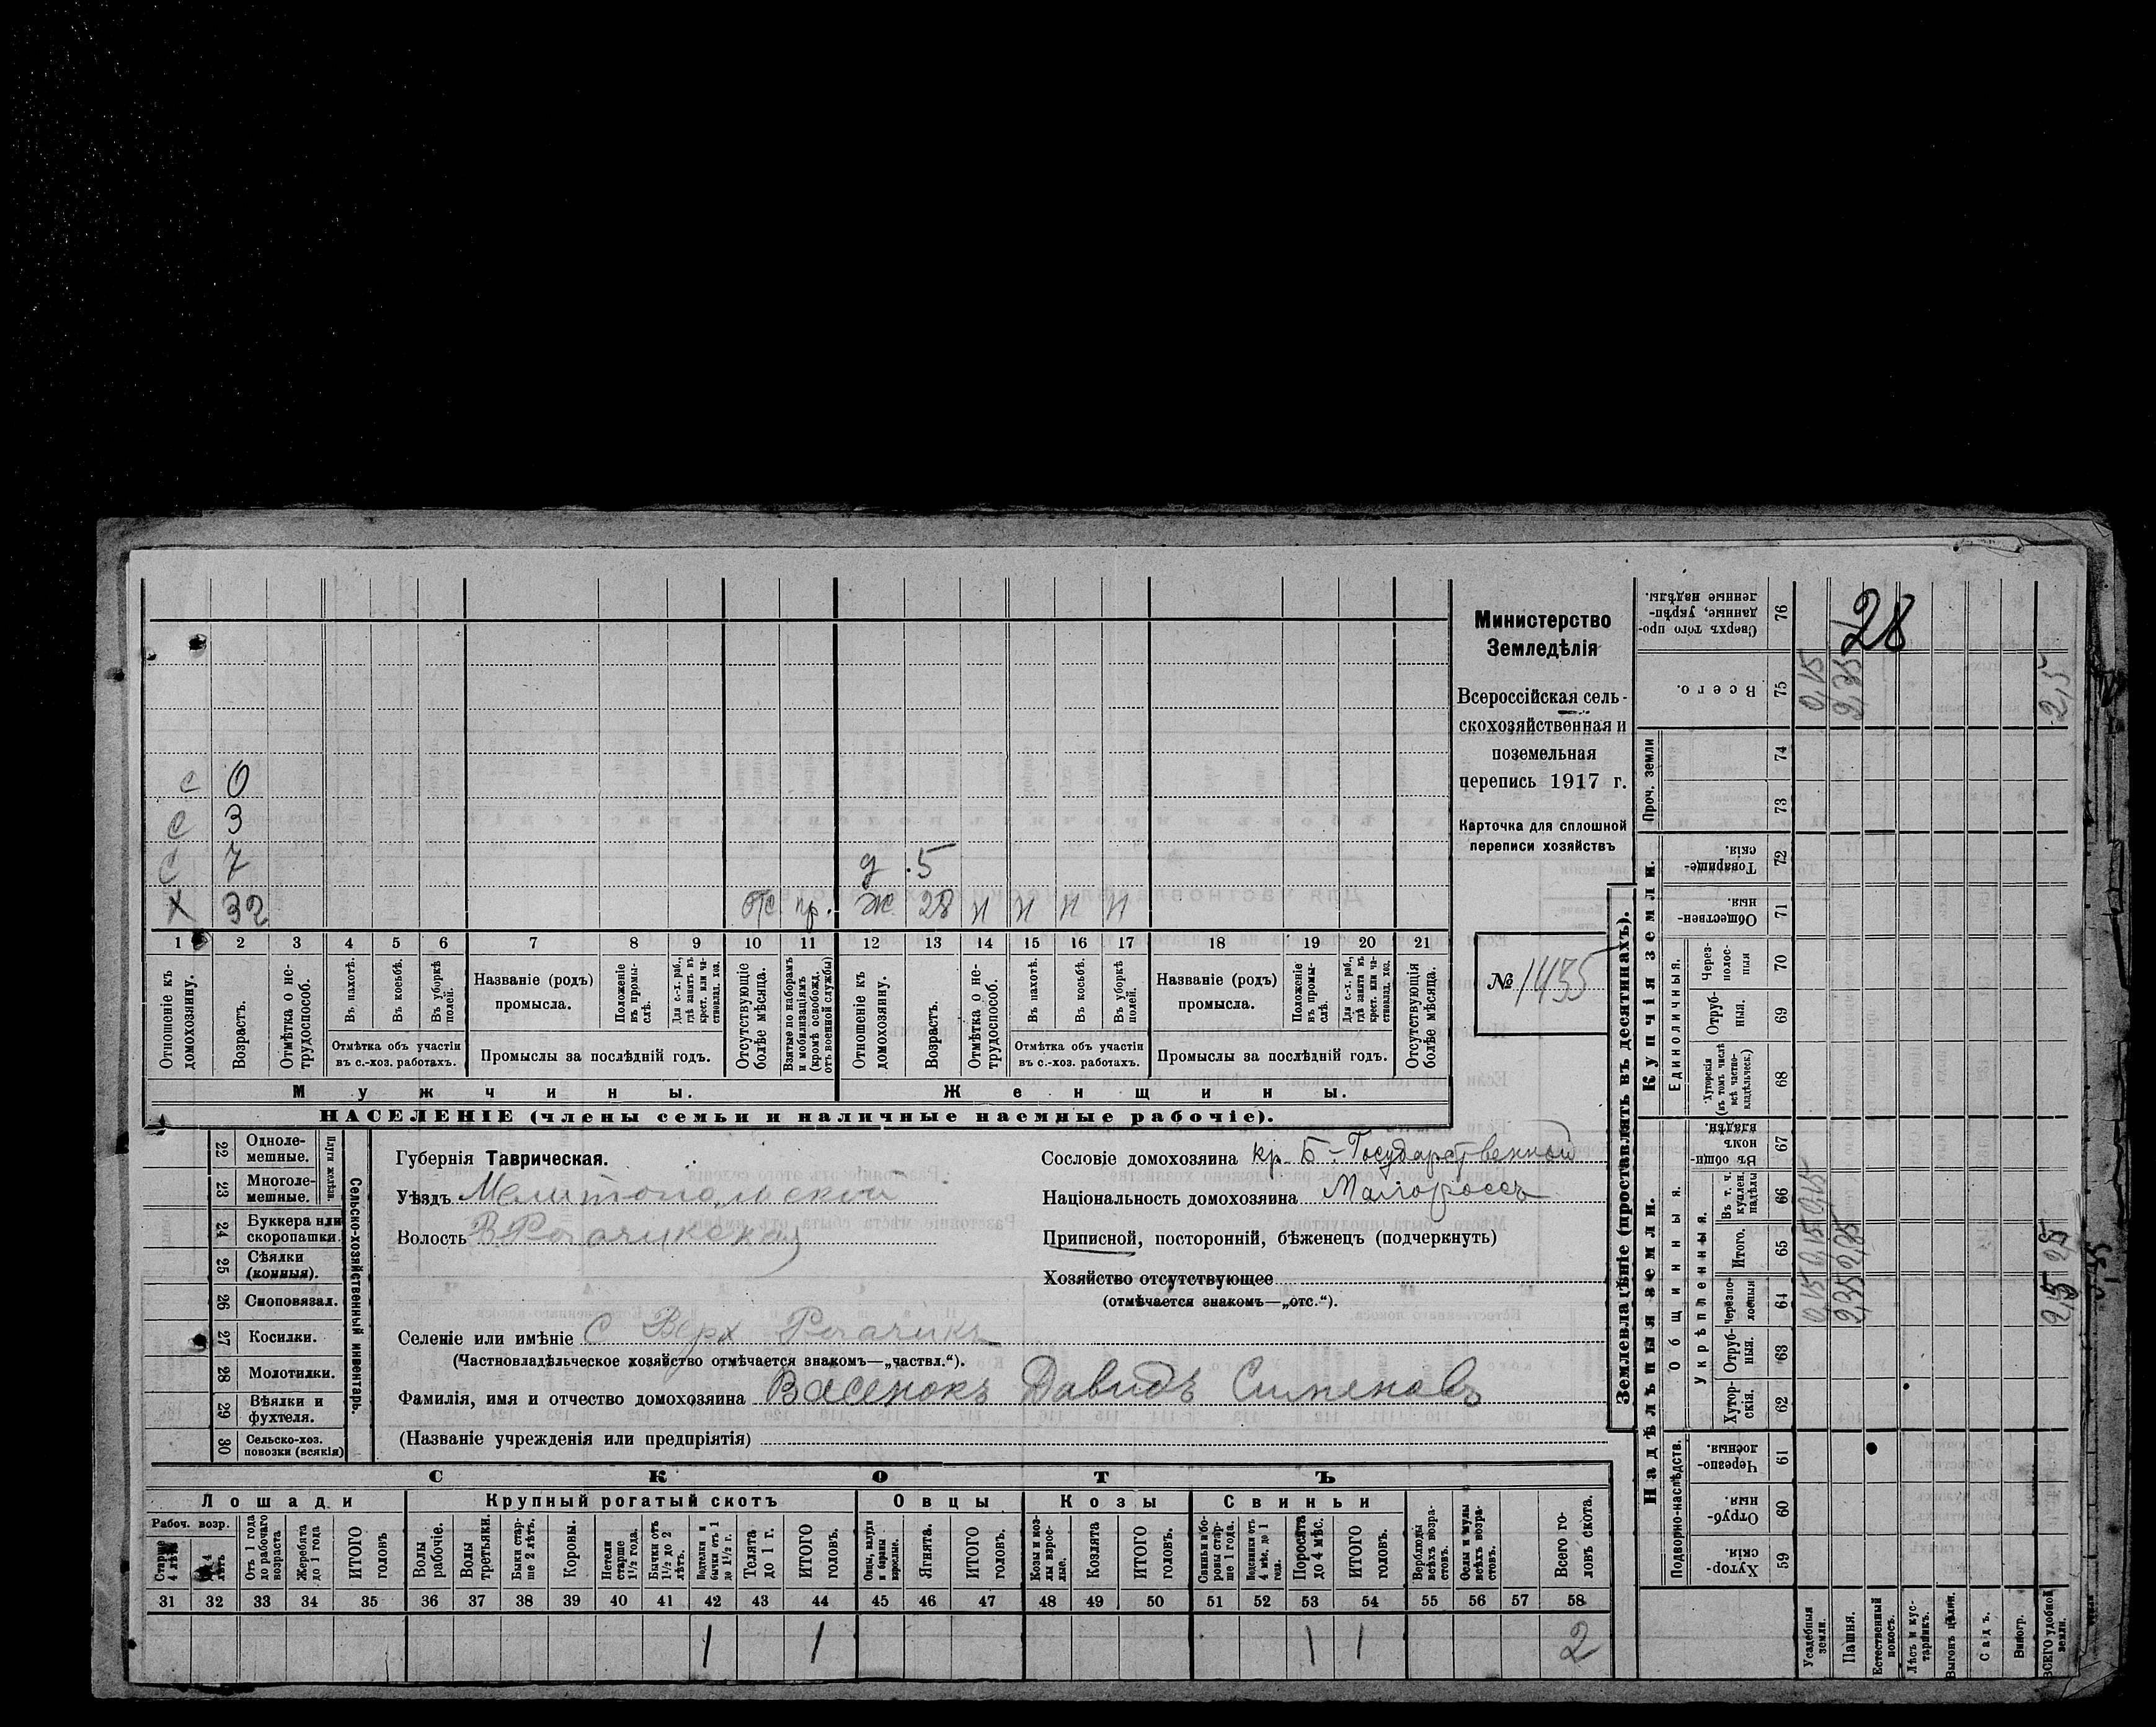 28
Министерство
Земледѣлія
Всероссійская сель-
скохозяйственная и
поземельная
перепись 1917 г.
Карточка для сплошной
переписи хозяйствъ
№ 1435
с 0
с 3
с 7 д. 5
х 32 отс. пр. ж. 28 н н н н
1 2 3 4 5 6 7 8 9 10 11 12 13 14 15 16 17 18 19 20 21
Отношеніе къ домохозяину.
Возрастъ.
Отмѣтка о не-трудоспособ.
Въ пахотѣ.
Въ косьбѣ.
Въ уборкѣ полей.
Отмѣтка объ участіи въ с.-хоз. работахъ.
Названіе (родъ) промысла.
Положеніе въ промы-слѣ.
Для с.-х. раб., гдѣ занятъ въ крест. или ча-стновлад. хоз.
Промыслы за послѣдній годъ.
Отсутствующіе болѣе мѣсяца.
Взятые по наборамъ и мобилизаціямъ (кромѣ освобожд. отъ военной службы)
Отношеніе къ домохозяину.
Возрастъ.
Отмѣтка о не-трудоспособ.
Въ пахотѣ.
Въ косьбѣ.
Въ уборкѣ полей.
Отмѣтка объ участіи въ с.-хоз. работахъ.
Названіе (родъ) промысла.
Положеніе въ промы-слѣ.
Для с.-х. раб., гдѣ занятъ въ крест. или ча-стновлад. хоз.
Промыслы за послѣдній годъ.
Отсутствующія болѣе мѣсяца.
Мужчины. Женщины.
НАСЕЛЕНІЕ (члены семьи и наличные наемные рабочіе).
22 Одноле-мешные.
23 Многоле-мешные.
24 Буккера или скоропашки.
25 Сѣялки (конныя).
26 Сноповязал.
27 Косилки.
28 Молотилки.
29 Вѣялки и фухтеля.
30 Сельско-хоз. повозки (всякія)
Сельско-хозяйственный инвентарь.
Губернія Таврическая.
Уѣздъ Мелитопольскій
Волость В Рогачикская
Сословіе домохозяина кр. Б-Государственной
Національность домохозяина Малороссъ
Приписной, посторонній, бѣженецъ (подчеркнуть)
Хозяйство отсутствующее
(отмѣчается знакомъ—„отс.“).
Селеніе или имѣніе С Верх Рогачикъ
(Частновладѣльческое хозяйство отмѣчается знакомъ—„частвл.“).
Фамилія, имя и отчество домохозяина Васенокъ Давидъ Сименовъ
(Названіе учрежденія или предпріятія)
СКОТЪ
Лошади Крупный рогатый скотъ Овцы Козы Свиньи
Рабоч. возр.
Старше 4 лѣтъ
Отъ 1 года до рабочаго возраста
Жеребята до 1 года
ИТОГО головъ
Волы рабочіе.
Волы третьяки.
Быки стар-ше 2 лѣтъ.
Коровы.
Нетели старше 1½ года.
Бычки отъ 1½ до 2 лѣтъ.
Подтелки и бычки отъ 1 до 1½ г.
Телята до 1 г.
ИТОГО головъ.
Овцы, валухи и бараны взрослые.
Ягнята.
ИТОГО головъ.
Козы и коз-лы взрос-лые.
Козлята
ИТОГО головъ.
Свиньи и бо-ровы стар-ше 1 года.
Подсвинки отъ 4 мѣс. до 1 года.
Поросята до 4 мѣс.
ИТОГО головъ.
Верблюды всѣхъ возра-стовъ.
Ослы и мулы всѣхъ возра-стовъ.
Всего го-ловъ скота.
31 32 33 34 35 36 37 38 39 40 41 42 43 44 45 46 47 48 49 50 51 52 53 54 55 56 57 58
1 1 1 1 2
Землевладѣніе (проставлять въ десятинахъ).
Надѣльныя земли. Купчія земли. Проч. земли
Подворно-наслѣдств.
Общинныя.
Укрѣпленныя.
Единоличныя.
Хутор-скія. 59
Отруб-ныя. 60
Черезпо-лосныя. 61
Хутор-скія. 62
Отруб-ныя. 63
Черезпо-лосныя 64
Итого. 65
Въ т. ч. куплен. надѣлы 66
Въ общин-номъ владѣн. 67
Хуторскія (въ томъ числѣ всѣ частно-владѣльческ.) 68
Отруб-ныя. 69
Через-полос-ныя 70
Обществен-ныя. 71
Товарище-скія. 72
73
74
Всего. 75
Сверхъ того про-данные, укрѣп-ленные надѣлы. 76
Усадебныя земли. 0,15 0,15 0,15 0,15
Пашня. 2,35 2,35 2,35
Естественный покосъ.
Лѣсъ и кус-тарникъ.
Выгонъ цѣлин.
Садъ.
Виногр.
ВСЕГО удобной земли. 2,5 2,5 2,5